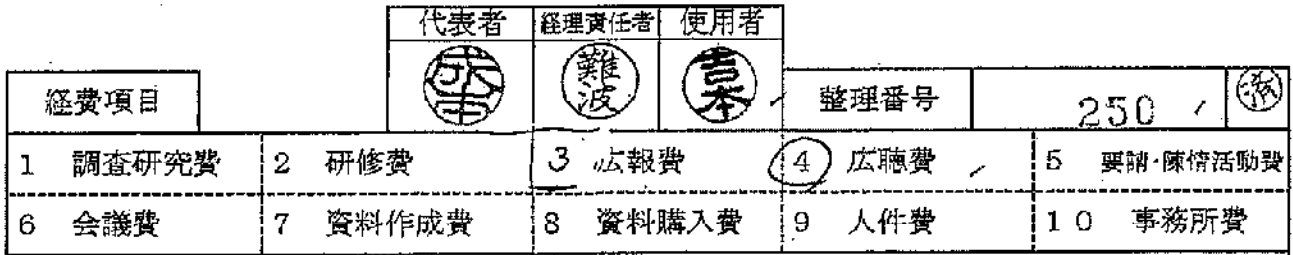 代表者 経理責任者 使用者
難波 吉本
経費項目 整理番号 250 済
1 調査研究費 2 研修費 3 広報費 4 広聴費 5 要請・陳情活動費
6 会議費 7 資料作成費 8 資料購入費 9 人件費 10 事務所費